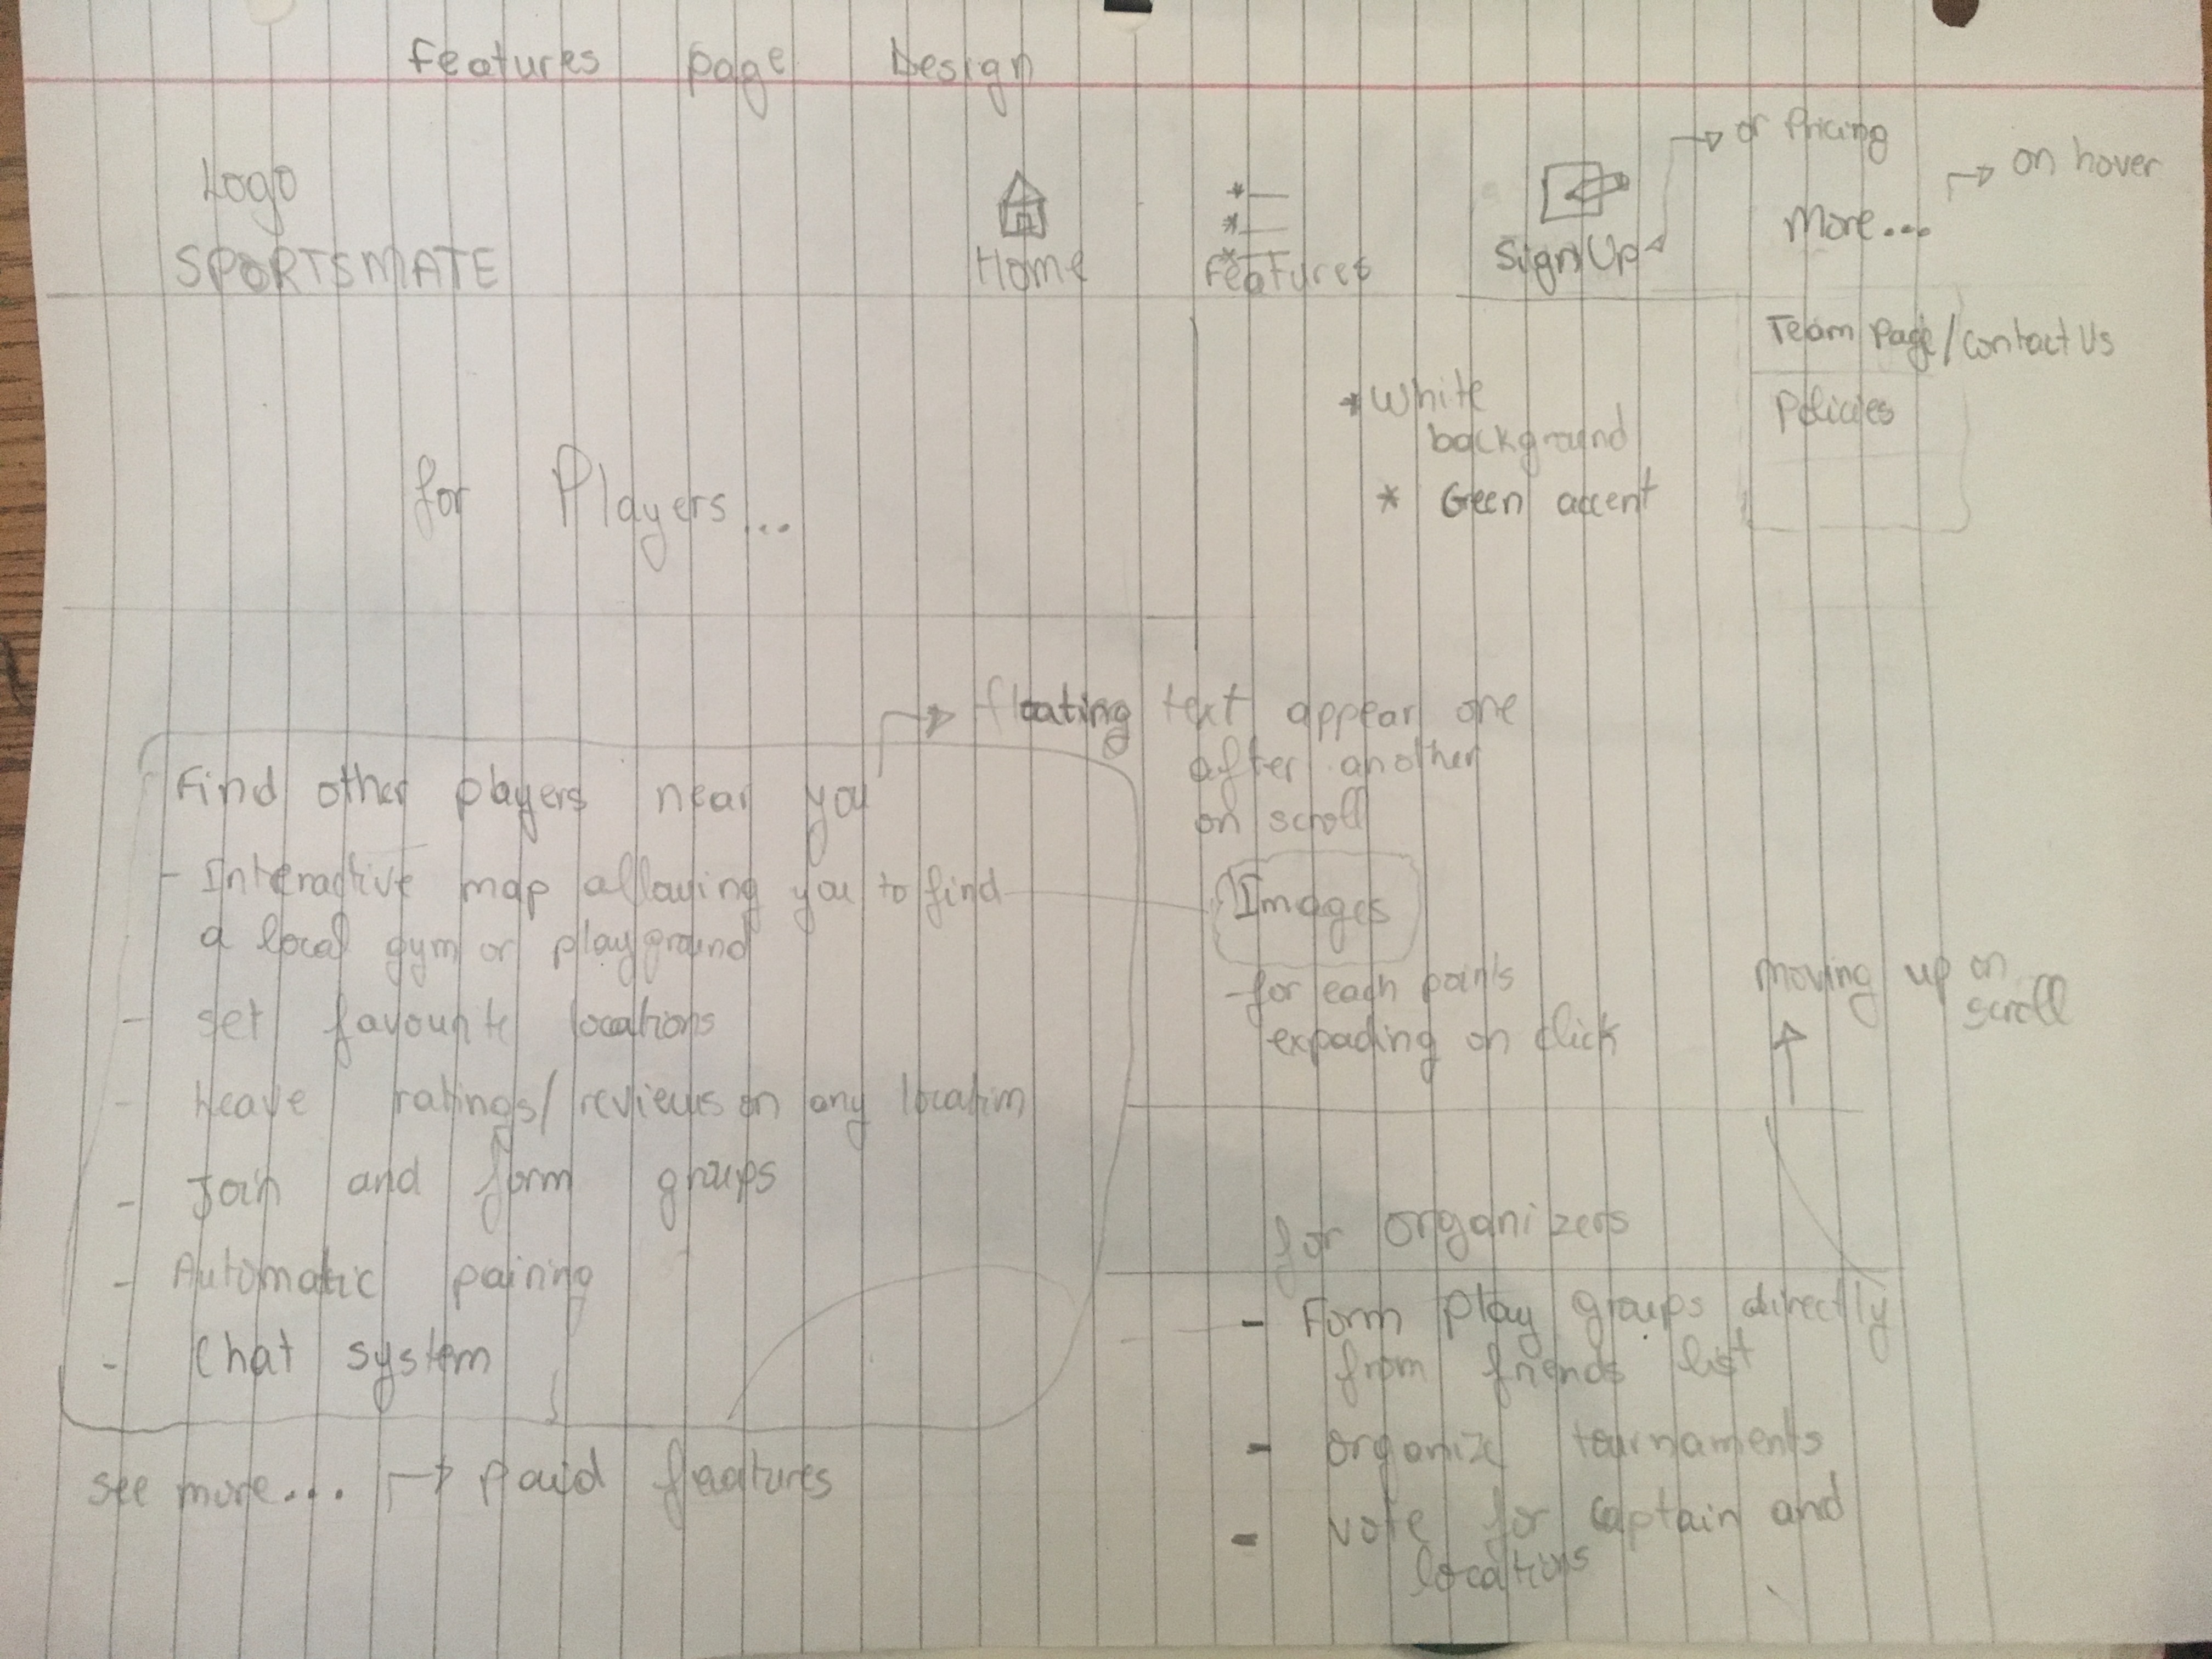 Features page Design
Logo
SPORTSMATE
Home
Features
Sign Up
or Pricing
More...
on hover
Team Page/contact Us
Policies
* White
background
* Green accent
for Players...
floating text appear one
after another
on scroll
Find other players near you
- Interactive map allowing you to find
a local gym or playground
- set favourite locations
- Leave ratings/reviews on any location
- Join and form groups
- Automatic pairing
- Chat system
see more... paid features
Images
- for each points
expading on click
moving up on
scroll
for organizers
- Form play groups directly
from friends list
- organize tournaments
- vote for captain and
locations